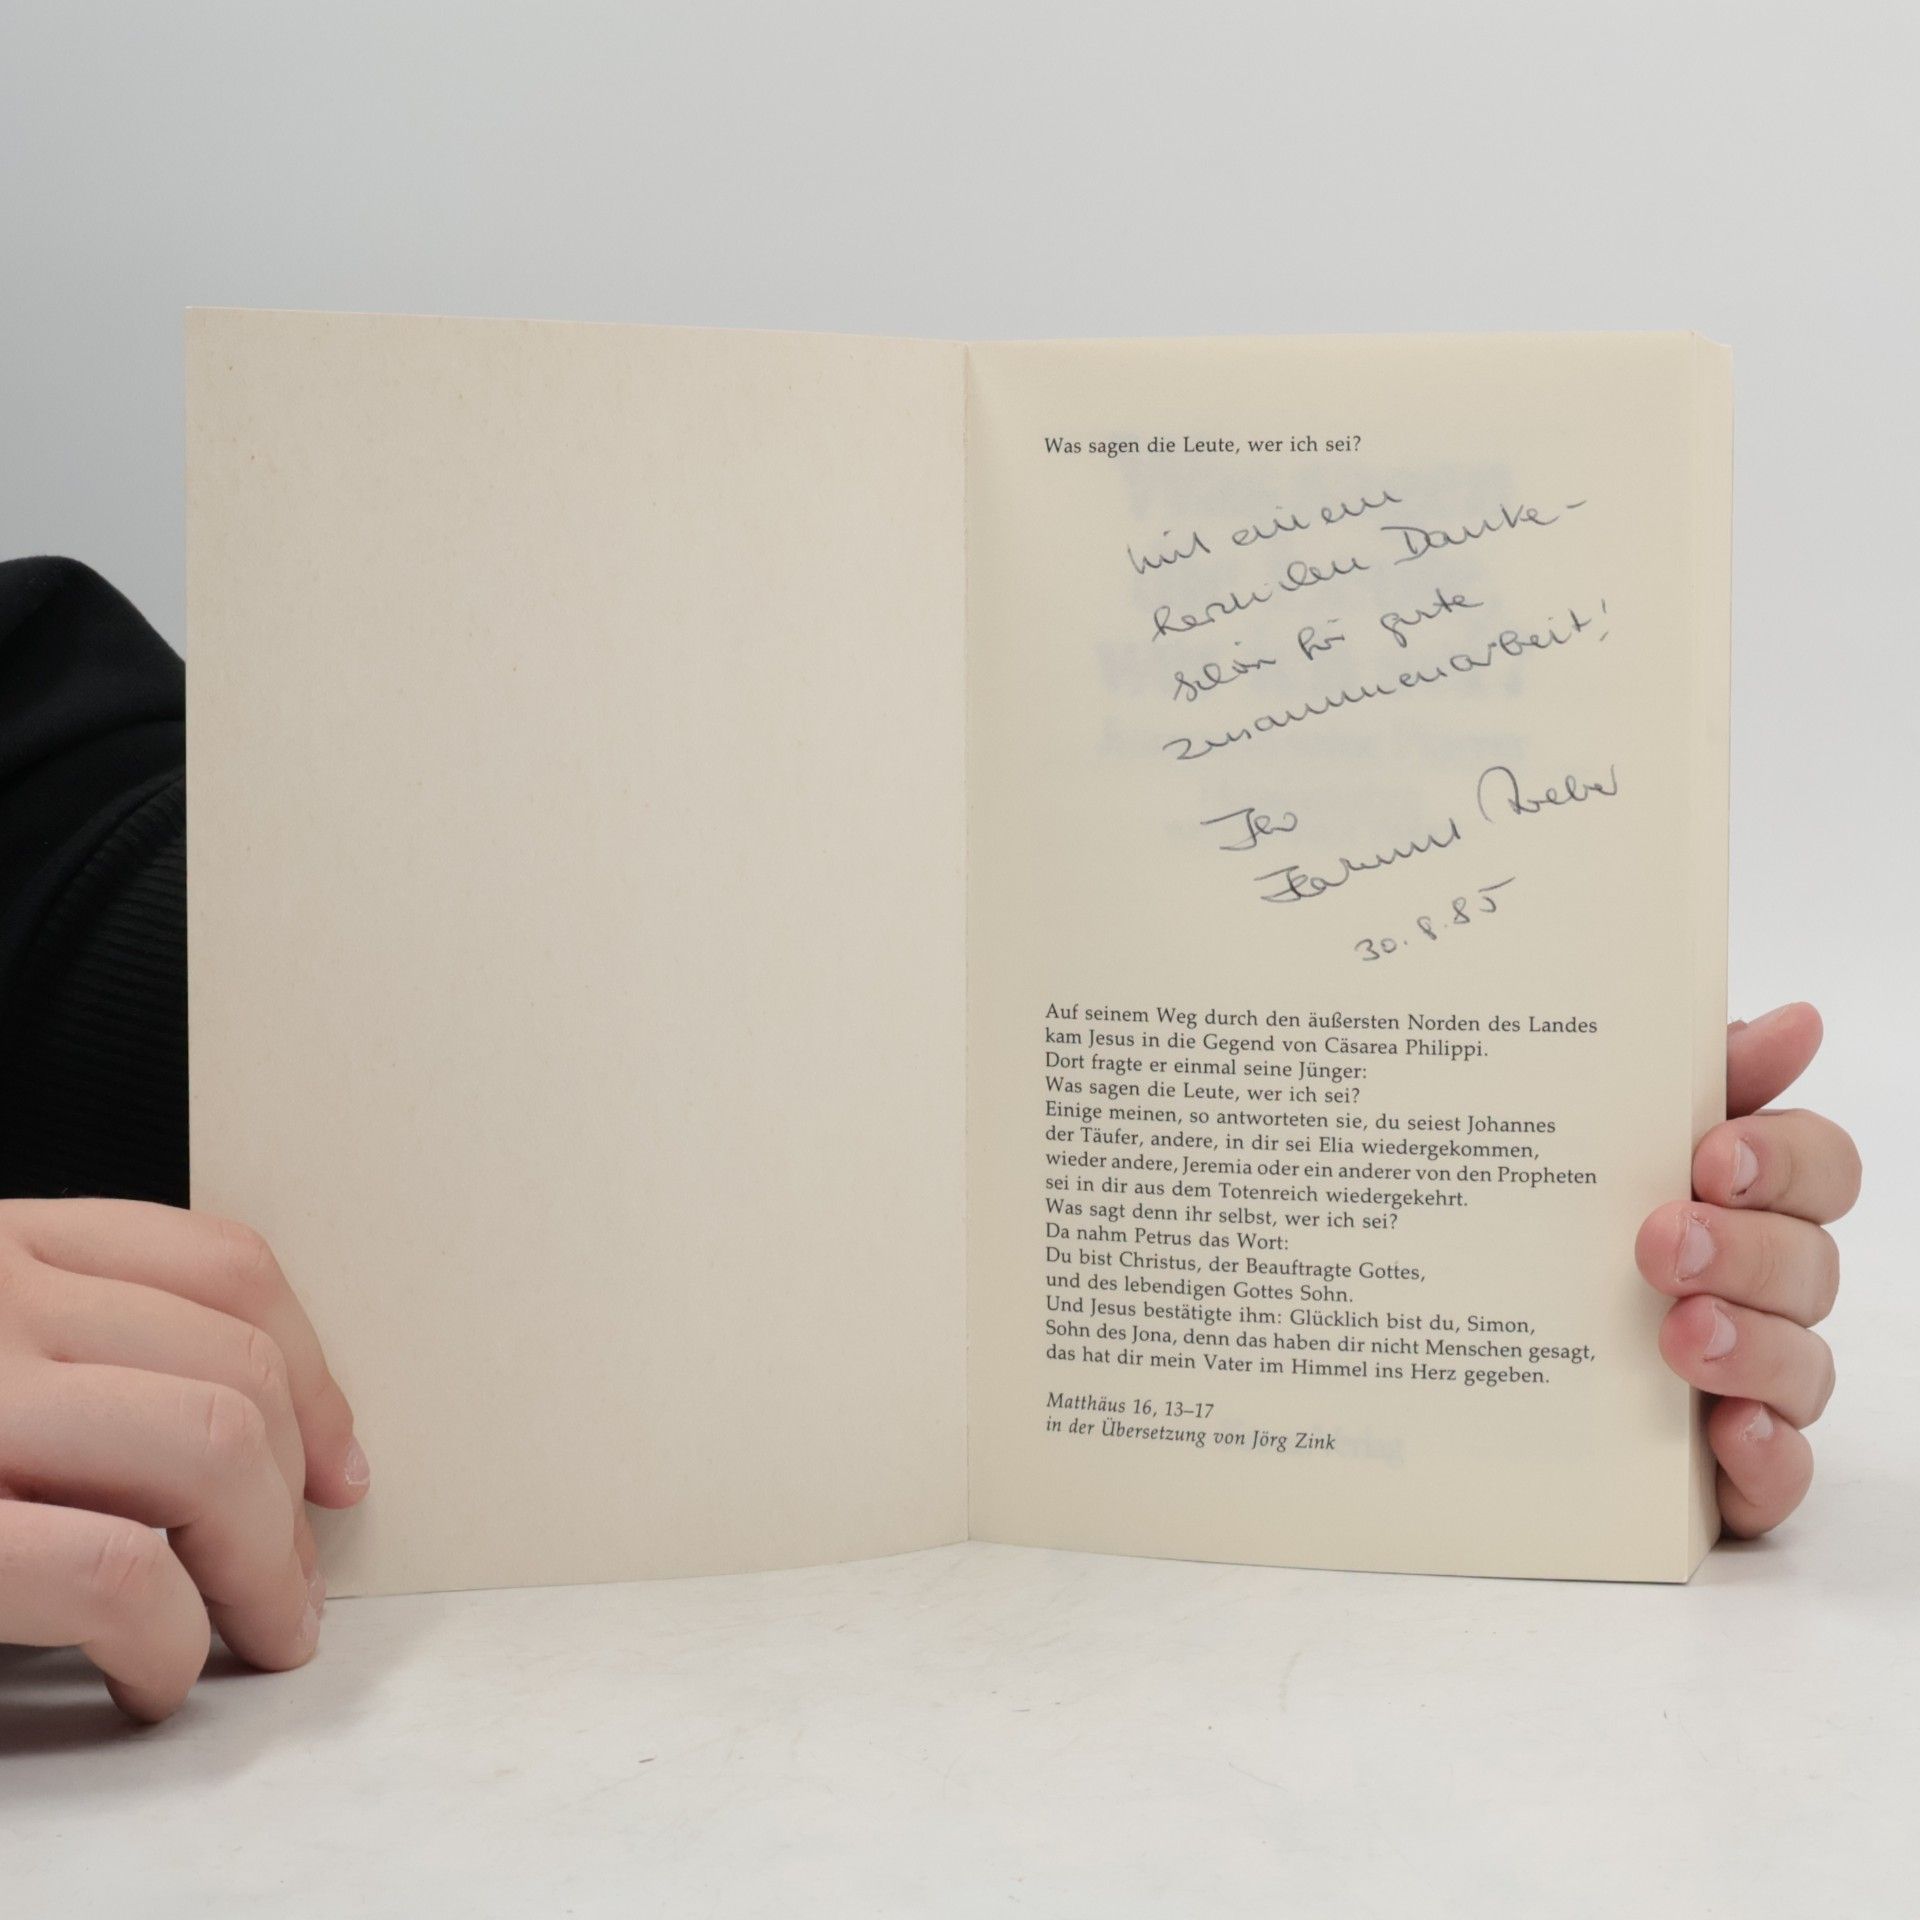 Was sagen die Leute, wer ich sei?
mit einem
herzlichen Danke-
schön für gute
Zusammenarbeit!
Ihr
Hartmut Weber
30.8.85
Auf seinem Weg durch den äußersten Norden des Landes
kam Jesus in die Gegend von Cäsarea Philippi.
Dort fragte er einmal seine Jünger:
Was sagen die Leute, wer ich sei?
Einige meinen, so antworteten sie, du seiest Johannes
der Täufer, andere, in dir sei Elia wiedergekommen,
wieder andere, Jeremia oder ein anderer von den Propheten
sei in dir aus dem Totenreich wiedergekehrt.
Was sagt denn ihr selbst, wer ich sei?
Da nahm Petrus das Wort:
Du bist Christus, der Beauftragte Gottes,
und des lebendigen Gottes Sohn.
Und Jesus bestätigte ihm: Glücklich bist du, Simon,
Sohn des Jona, denn das haben dir nicht Menschen gesagt,
das hat dir mein Vater im Himmel ins Herz gegeben.
Matthäus 16, 13–17
in der Übersetzung von Jörg Zink